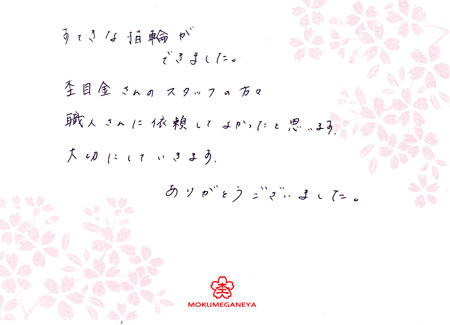 すてきな指輪が
できました。
杢目金さんのスタッフの方々
職人さんに依頼してよかったと思います.
大切にしていきます.
ありがとうございました。
杢
MOKUMEGANEYA